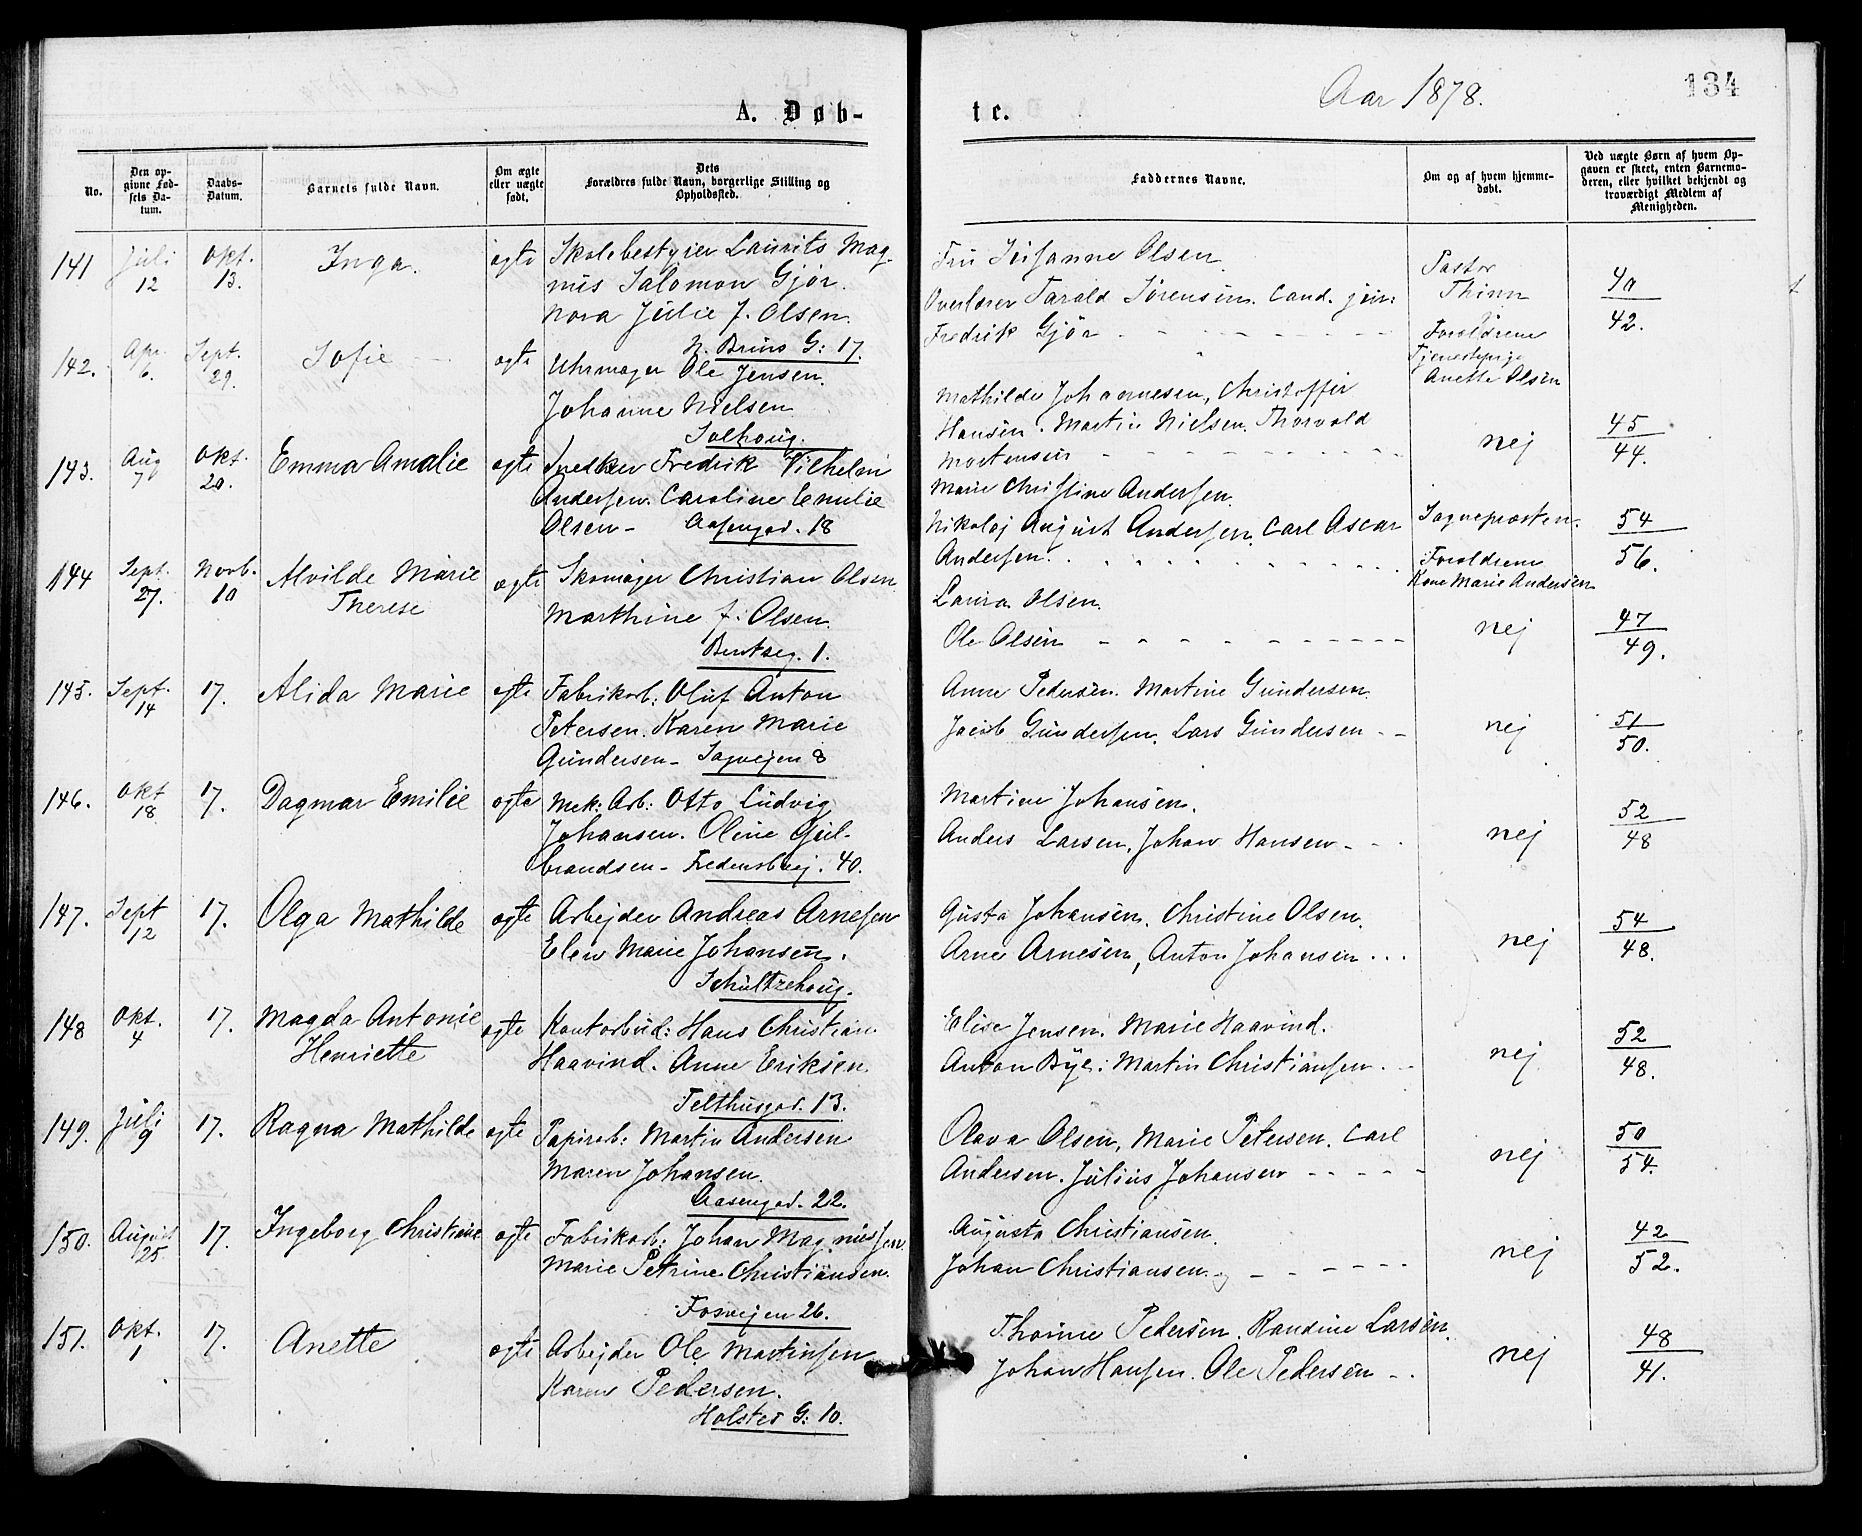 A. Døb-
te.
Aar 1878.
134
No.
Den op-
givne Fød-
sels Da-
tum.
Daabs-
Datum.
Barnets fulde Navn.
Om ægte
eller uægte
født.
Dets
Forældres fulde Navn, borgerlige Stilling og
Opholdssted.
Faddernes Navne.
Om og af hvem hjemme-
døbt.
Ved uægte Børn af hvem Op-
gaven er skeet, enten Barnemo-
deren, eller hvilket bekjendt og
troværdigt Medlem af
Menigheden.
141 Juli 12 Okt. 13. Inga. ægte
Skolebestyrer Laurits Mag-
nus Salomon Gjør.
Nora Julie f. Olsen.
N. Bruns G: 17.
Fru Susanne Olsen.
Overlærer Tarald Sørensen. Cand. jur:
Fredrik Gjør
Pastor
Thinn
40
42.
142. Apr. 6. Sept. 29. Sofie ægte
Uhrmager Ole Jensen.
Johanne Nielsen
Solhoug.
Mathilde Johannesen, Christoffer
Hansen. Martin Nielsen. Thorvald
Mortensen
Forældrene
Tjenestepige
Anette Olsen
nej
45
44.
143. Aug 7 Okt. 20. Emma Amalie ægte
Snedker Fredrik Vilhelm
Andersen. Caroline Emilie
Olsen - Aasengad. 18
Marie Christine Andersen.
Nikolaj August Andersen, Carl Oscar
Andersen.
Sognepræsten.
54
56.
144 Sept. 27. Novb. 10 Alvilde Marie
Therese ægte
Skomager Christian Olsen.
Marthine f. Olsen.
Bentseg. 1.
Laura Olsen.
Ole Olsen
Forældrene
Kone Marie Andersen
nej
47
49.
145. Sept. 14 17. Alida Marie ægte
Fabrikarb: Oluf Anton
Petersen. Karen Marie
Gundersen - Sagvejen 8
Anne Pedersen. Martine Gundersen.
Jacob Gundersen. Lars Gundersen
nej
51
50.
146. Okt 18 17. Dagmar Emilie ægte
Mek: Arb: Otto Ludvig
Johansen. Oline Gul-
brandsen - Fredensbvej. 40.
Martine Johansen.
Anders Larsen. Johan Hansen
nej
52
48
147. Sept 12 17. Olga Mathilde ægte
Arbejder Andreas Arnesen
Elen Marie Johansen.
Schultzehoug.
Gusta Johansen. Christine Olsen.
Arne Arnesen, Anton Johansen
nej
54
48.
148 Okt. 4 17. Magda Antonie
Henriette ægte
Kontorbud: Hans Christian
Haavind. Anne Eriksen.
Telthusgad. 13.
Elise Jensen. Marie Haavind.
Anton Bye. Martin Christiansen
nej
52
48.
149. Juli 9 17. Ragna Mathilde ægte
Papirarb: Martin Andersen
Maren Johansen.
Aasengad. 22.
Olava Olsen, Marie Petersen. Carl
Andersen. Julius Johansen
nej
50
54.
150. August 25 17. Ingeborg Christiane ægte
Fabrikarb: Johan Magnussen
Marie Petrine Christiansen.
Fosvejen 26.
Augusta Christiansen.
Johan Christiansen
nej
42
52.
151. Okt. 1 17. Anette ægte
Arbejder Ole Martinsen
Karen Pedersen.
Holsts G: 10.
Thorine Pedersen. Randine Larsen.
Johan Hansen. Ole Pedersen
nej
48
41.